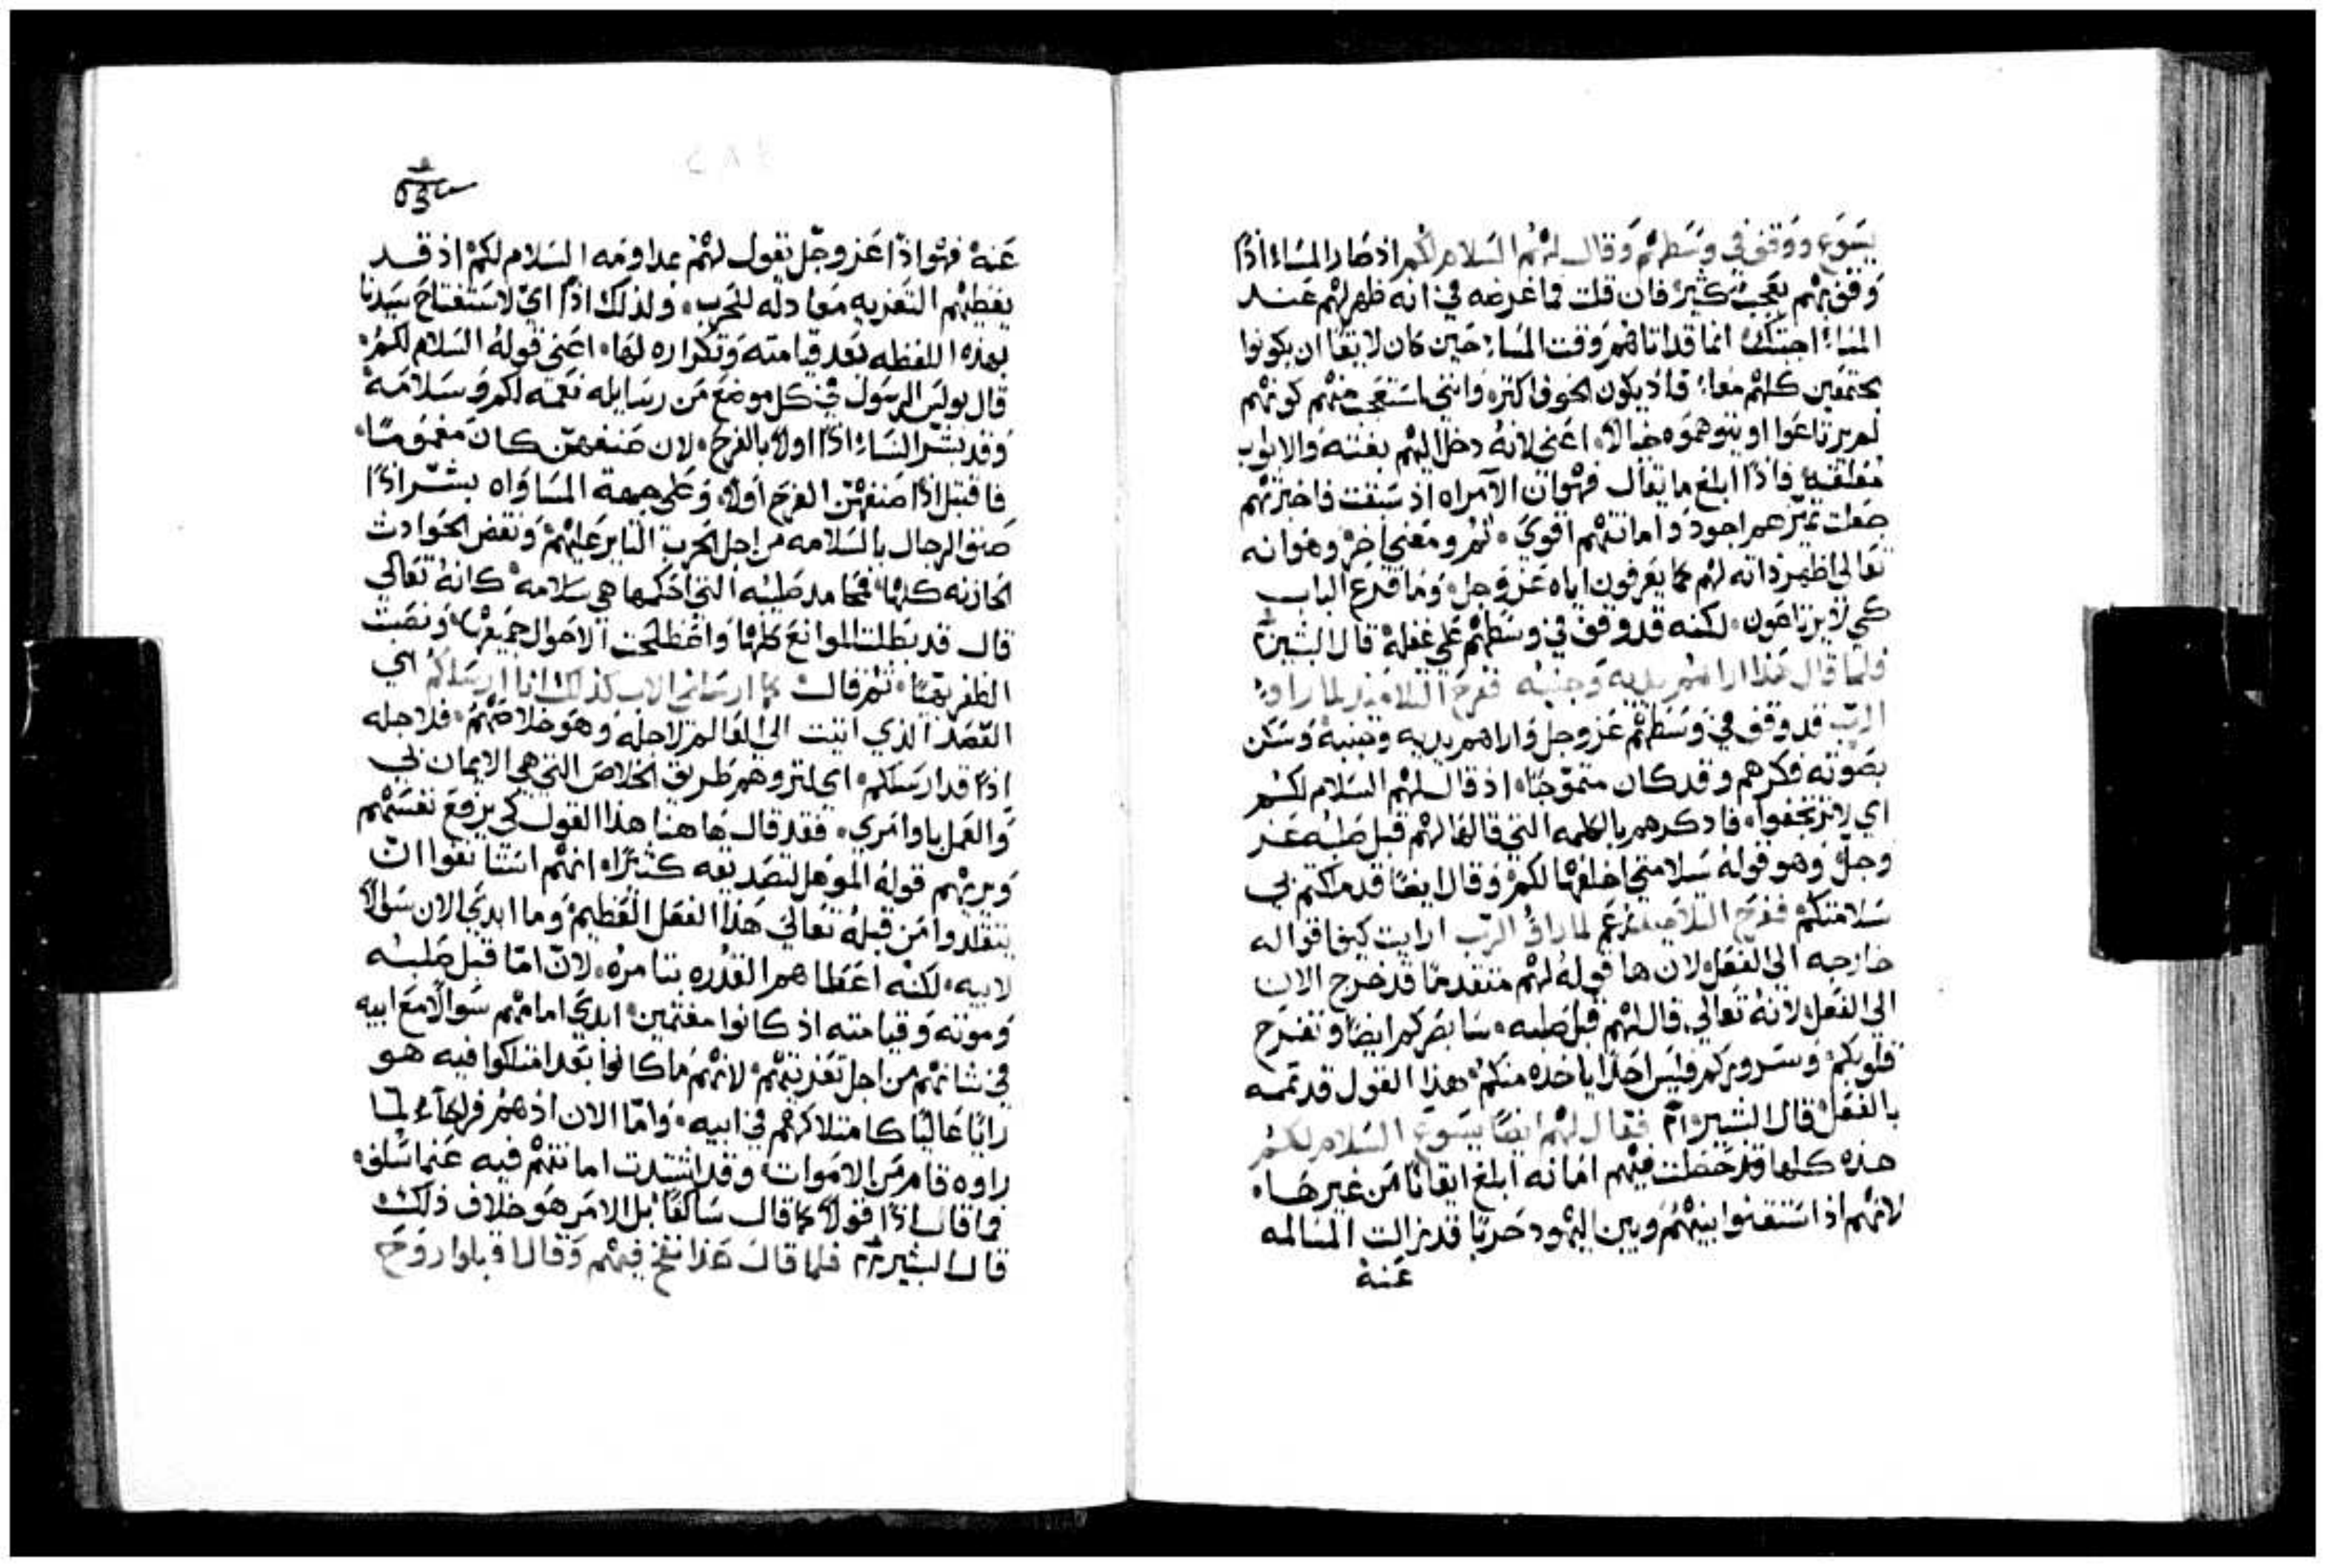 يسوع ووقف في وسطهم وقال لهم السلام لكم اذ صار المساء اذًا
وقف بهم بعجب كثير فان قلت فما غرضه في انه ظهر لهم عند
المساء اجبتك انما قد اتاهم وقت المساء حين كان لايقًا ان يكونوا
مجتمعين كلهم معا؛ فاذ يكون الخوف اكثره وانني استعجب منهم كونهم
لم يرتاعوا او يتوهموه خيالًا، اعني لانه دخل اليهم بغتة والابواب
مغلقه فاذًا ابلغ ما يقال فهو ان الامراه اذ سبقت فاخبرتهم
جعلت تميزهم اجود وامانتهم اقوي، ثم ومعني اخر وهو انه
تعالي اظهر ذاته لهم كما يعرفون اياه عز وجل، وما قرع الباب
كي لا يرتاعون، لكنه قد وقف في وسطهم علي غفلة قال البشير
فلما قال هذا اراهم يديه وجنبه ففرح التلاميذ لما راوا
الرب قد وقف في وسطهم عز وجل واراهم يديه وجنبه وسكن
بصوته فكرهم وقد كان متموجًا، اذ قال لهم السلام لكم
اي لا ترتجفوا، فاذكرهم بالكلمه التي قالها لهم قبل صلبه عز
وجل وهو قوله سلامتي اخلفها لكم، وقال ايضا قد ملكتم بي
سلامتكم ففرح التلاميذ لما راوا الرب ارايت كيف اقواله
خارجه الي الفعل لان ها قوله لهم متقدمًا قد خرج الان
الي الفعل لانه تعالي قال لهم قبل صلبه، سابصركم ايضًا وتفرح
قلوبكم، وسروركم فليس احدًا ياخذه منكم، هذا القول قد تممه
بالفعل قال البشير فقال لهم ايضًا يسوع السلام لكم
هذه كلها قد حصلت فيهم امانه ابلغ اتقانًا من غيرها،
لانهم اذ استقنوا بينهم وبين اليهود حربًا قد زالت المسالمه
عنه
عنه فهو اذًا عز وجل يقول لهم بمداومه السلام لكم اذ قد
يعطيهم التعزيه معادله للحرب، ولذلك اذًا اي لاستفتاح سيدنا
بهذه اللفظه بعد قيامته وتكراره لها، اعني قوله السلام لكم،
قال بولس الرسول في كل موضع من رسايله نعمه لكم وسلامة
وقد بشر النساء اذًا اولًا بالفرح، لان صنفهن كان مغمومًا،
فاقتبل اذًا صنفهن الفرح اولًا، وعلي جهة المساواه بشر اذًا
صنف الرجال بالسلامه من اجل الحرب الثاير عليهم، ونقض الحوادث
الحازنه كلها، فمحامد صليبه التي احكمها هي سلامه كانه تعالي
قال قد بطلت الموانع كلها واصطلحت الاحوال جميعها، ونصبت
الظفر بهيًا، ثم قال كما ارسلني الاب كذلك انا ارسلكم اي
القصد الذي اتيت الي العالم لاجله وهو خلاصهم، فلاجله
اذًا قد ارسلكم، اي لتروهم طريق الخلاص التي هي الايمان بي
والعمل باوامري، فقد قال هاهنا هذا القول كي يرفع نفسهم
ويريهم قوله الموهل لتصديقه كثيرًا، انهم استانفوا ان
يتقلدوا من قبله تعالي هذا الفعل العظيم، وما ابدي الان سوالًا
لابيه، لكنه اعطاهم القدره بتامره، لان اما قبل صلبه
وموته وقيامته اذ كانوا مغتمين، ابدي امامهم سوالًا مع ابيه
في شانهم من اجل تعزيتهم، لانهم ما كانوا بعد امتلكوا فيه هو
رايًا عاليًا كامتلاكهم في ابيه، واما الان اذ هم فرحاء لما
راوه قام من الاموات وقد اشتدت امانتهم فيه عما سلف،
فما قال اذًا قولًا كما قال سالفًا بل الامر هو خلاف ذلك
قال البشير فلما قال هذا نفخ فيهم وقال اقبلوا روح